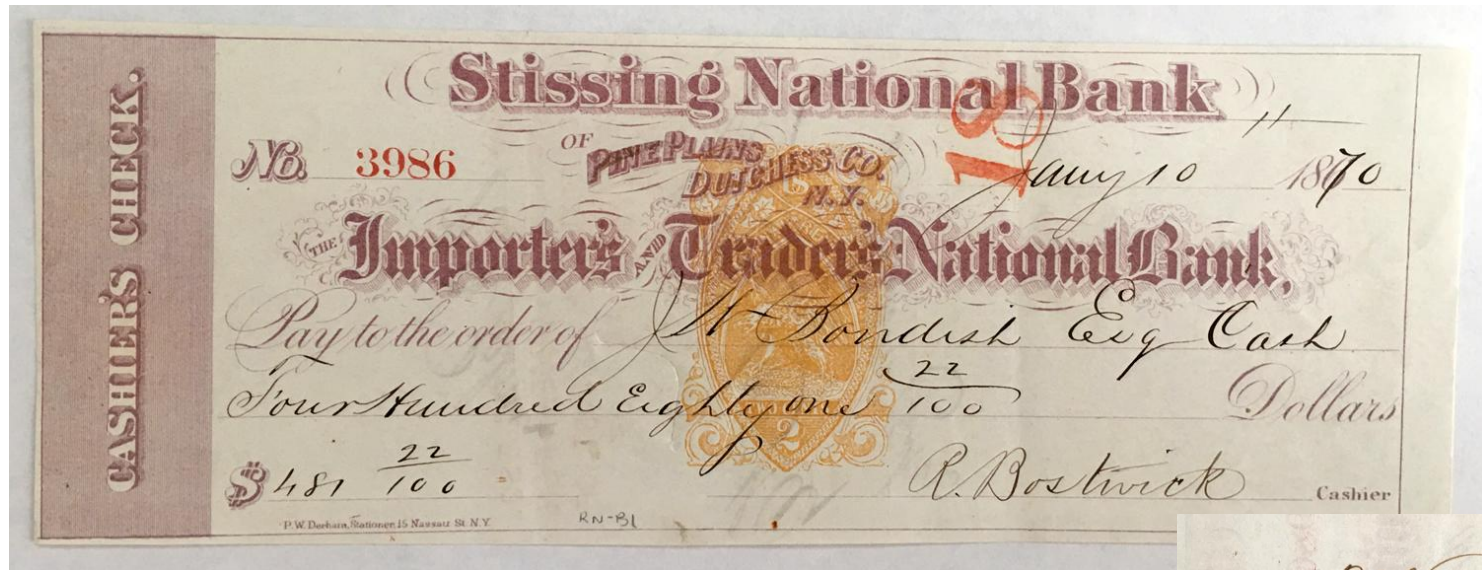 CASHIER'S CHECK.
Stissing National Bank
11
No. 3986
OF PINE PLAINS
DUTCHESS CO.
N.Y.
18
Jany 10 1870
THE Importers AND Traders National Bank,
Pay to the order of J W Bondish Esq Cash
Four Hundred Eighty one 22/100 Dollars
2
$ 481 22/100
R. Bostwick Cashier
P. W. Derham, Stationer, 15 Nassau St. N.Y.
RN-B1